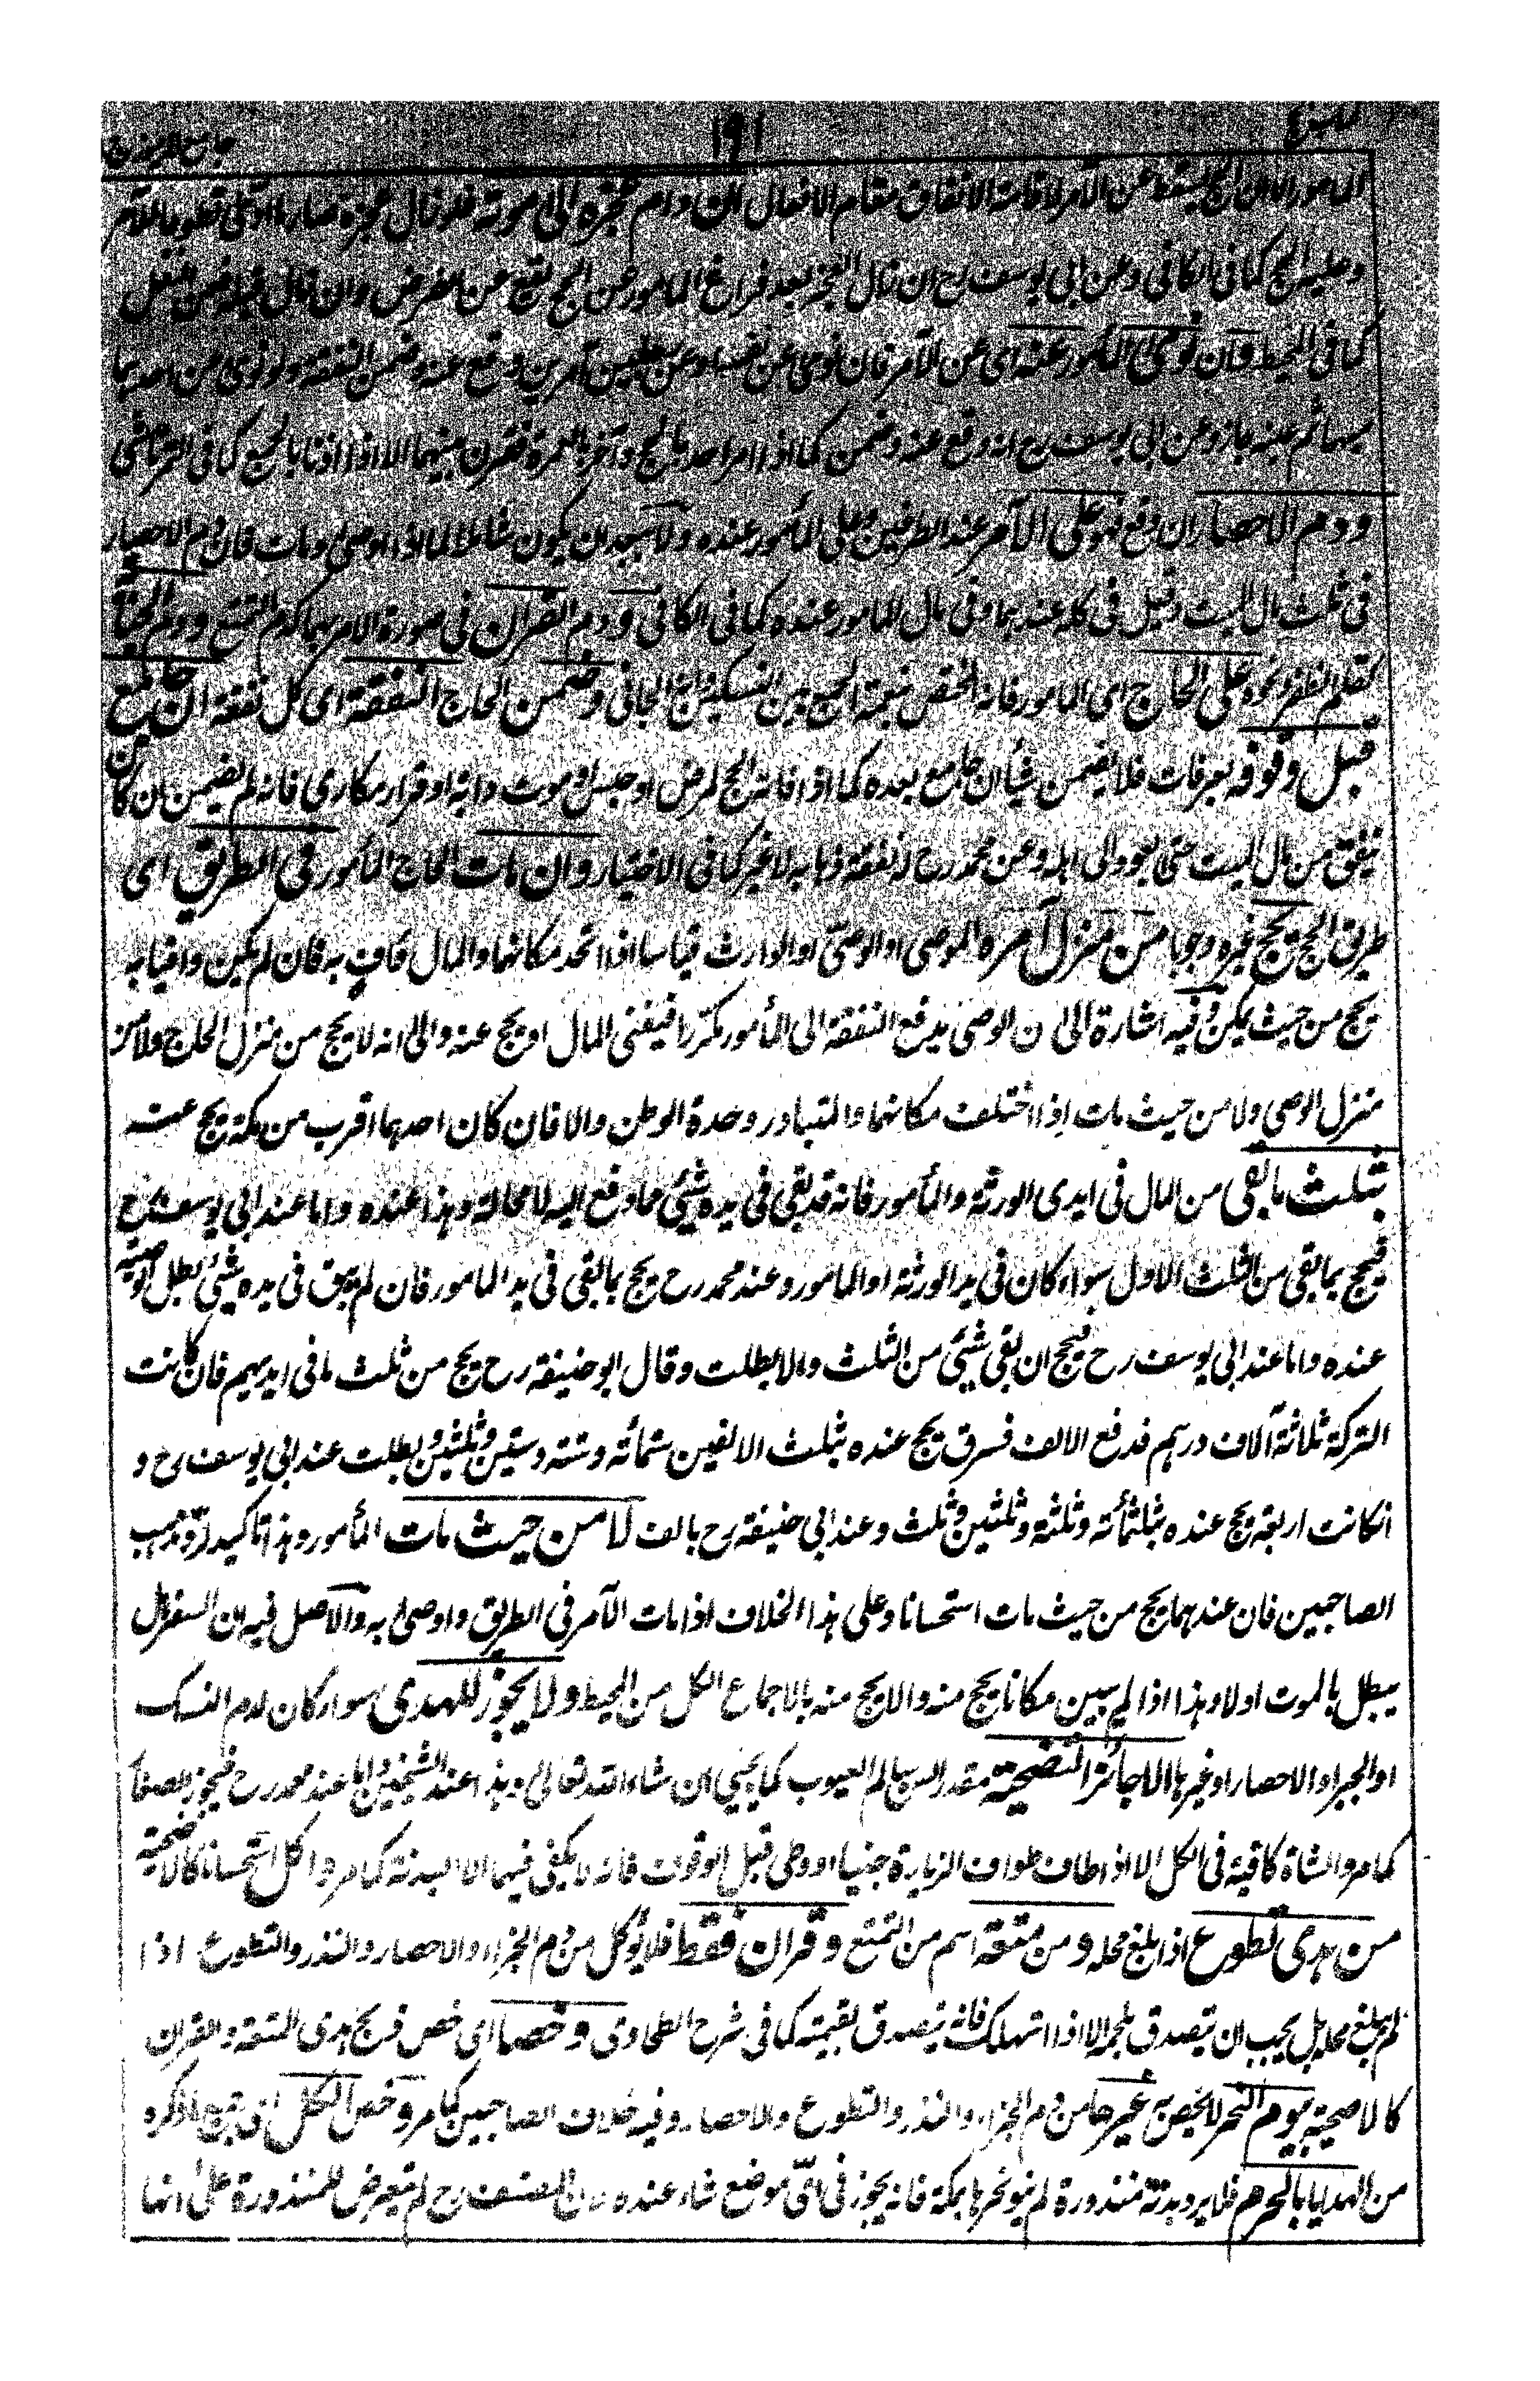 ١٩١
جامع الرموز ج
المامور الا ان الحج يسقط عن الآمر لاقامة الانفاق مقام الافعال ان دام عجزه الى موته فلو زال عجزه صار ما ادى تطوعا للآمر
وعليه الحج كما فى الكافى وعن ابى يوسف رح ان زال العجز بعد فراغ المامور عن الحج يقع عن الفرض وان زال قبله فعن النفل
كما فى المحيط وان نوى المأمور عنه اى عن الآمر فان نوى عن نفسه او عن آمرين وقع عنه وضمن النفقة ولو نوى عن احدهما
مبهما ثم عينه جاز وعن ابى يوسف رح انه وقع عنه وضمن كما اذا امر احد بالحج وآخر بالعمرة فقرن بينهما الا اذا اذنا بالجمع كما فى التمرتاشى
ودم الاحصار ان وقع فهو على الآمر عند الطرفين وعلى المأمور عنده ولا يبعد ان يكون شاملا لما اذا اوصى ومات فان دم الاحصار
فى ثلث مال الميت وقيل فى كله عندهما وفى مال المامور عنده كما فى الكافى ودم القران فى صورة الامر بهما كدم التمتع ودم الجناية
كقلم الظفر ونحوه على الحاج اى المامور فانه المختص بنعمة الجمع بين النسكين وانه الجانى وضمن الحاج النفقة اى كل نفقة ان جامع
قبل وقوفه بعرفات فلا يضمن شيئا ان جامع بعده كما اذا فاته الحج لمرض او حبس او موت دابة او فرار مكارى فانه لم يضمن ان كان
ينفق من مال الميت حتى يعود الى اهله وعن محمد رح له نفقة ذهابه لا غير كما فى الاختيار وان مات الحاج المأمور فى الطريق اى
طريق الحج يحج غيره وجوبا من منزل آمره الموصى او الوصى او الوارث قياسا اذا اتحد مكانهما والمال كاف به فان لم يكن وافيا به
يحج من حيث يمكن وفيه اشارة الى ان الوصى يدفع النفقة الى المأمور مكررا فيفنى المال او يحج عنه والى انه لا يحج من منزل الحاج ولا من
منزل الوصى ولا من حيث مات اذا اختلف مكانهما والمتبادر وحدة الوطن والا فان كان احدهما اقرب من مكة يحج عنه
بثلث ما بقى من المال فى ايدى الورثة والمأمور فانه قد بقى فى يده شيئ مما دفع اليه لا محالة وهذا عنده واما عند ابى يوسف رح
فيحج بما بقى من الثلث الاول سواء كان فى يد الورثة او المامور وعند محمد رح يحج بما بقى فى يد المامور فان لم يبق فى يده شيئ بطل الوصية
عنده واما عند ابى يوسف رح فيحج ان بقى شيئ من الثلث والا بطلت وقال ابو حنيفة رح يحج من ثلث ما فى ايديهم فان كانت
التركة ثلاثة آلاف درهم فدفع الالف فسرق يحج عنده بثلث الالفين ستمائة وستة وستين وثلثين وبطلت عند ابى يوسف رح و
انكانت اربعة يحج عنده بثلثمائة وثلثة وثلثين وثلث وعند ابى حنيفة رح بالف لا من حيث مات المأمور وهذا تاكيد لرد مذهب
الصاحبين فان عندهما يحج من حيث مات استحسانا وعلى هذا الخلاف اذا مات الآمر فى الطريق واوصى به والاصل فيه ان السفر هل
يبطل بالموت اولا وهذا اذا لم يبين مكانا يحج منه والا يحج منه بالاجماع الكل من المحيط ولا يجوز للهدى سواء كان لدم النسك
او الجبر او الاحصار او غيرها الا جائز التضحية مقدر السن سالم العيوب كما يجيئ ان شاء الله تعالى وهذا عند الشيخين واما عند محمد رح فيجوز الصغار
كما مر والشاة كافية فى الكل الا اذا طاف طواف الزيارة جنبا او وطى قبل الوقوف فانه لا يكفى فيهما الا البدنة كما مر واكل استحسانا كالاضحية
من هدى تطوع اذا بلغ محله ومن متعة اسم من التمتع وقران فقط فلا يؤكل من دم الجزاء والاحصار والنذر والتطوع اذا
لم يبلغ محله بل يجب ان يتصدق بلحمه الا اذا استهلك فانه يتصدق بقيمته كما فى شرح الطحاوى وخصا اى خص ذبح هدى المتعة والقران
كالاضحية بيوم النحر لا يختص به غيرها من دم الجزاء والنذر والتطوع والاحصار وفيه خلاف الصاحبين كما مر وخص الكل اى ذبح ما ذكره
من الهدايا بالحرم فلا يرد بدنة منذورة لم ينو نحرها بمكة فانه يجوز فى اى موضع شاء عنده المصنف رح لم يتعرض للمنذورة على انها